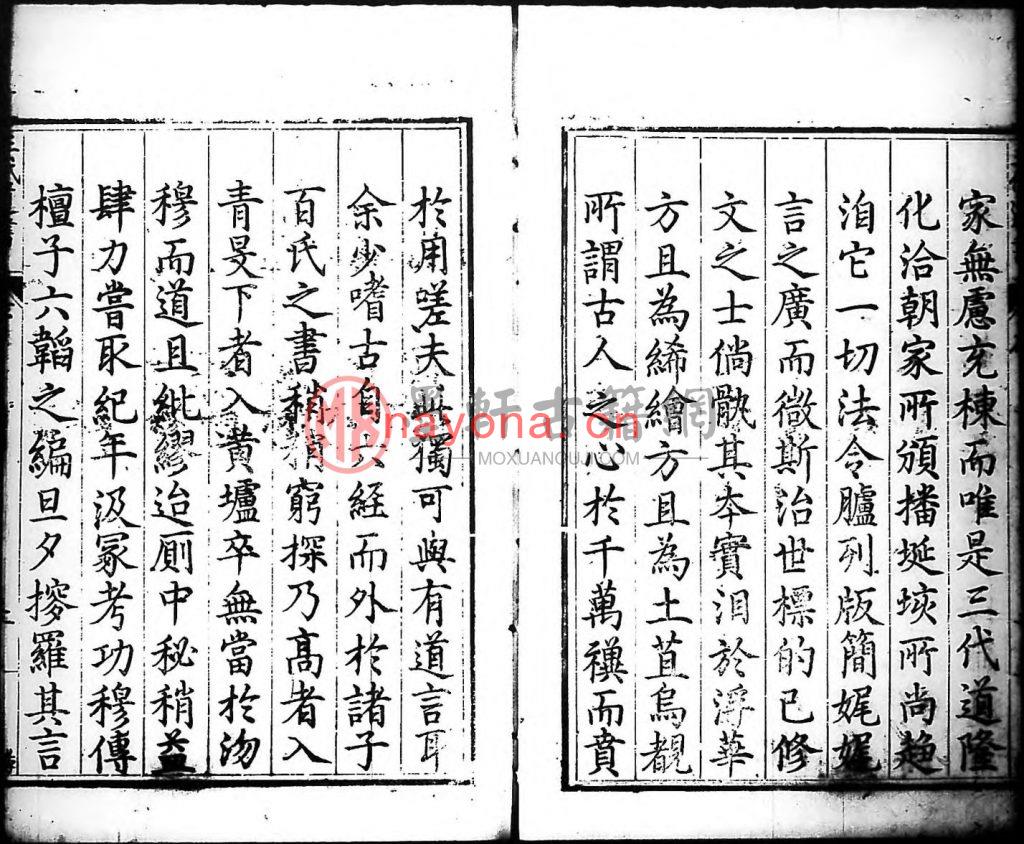 家無慮充棟而唯是三代道隆
化洽朝家所頒播埏垓所尚趍
洎它一切法令臚列版簡娓娓
言之廣而徵斯治世標的已修
文之士倘骫其本實泪於浮華
方且為絺繪方且為土苴烏覩
所謂古人之心於千萬禩而賁
於用嗟夫獨可與有道言耳
余少嗜古自六經而外於諸子
百氏之書稍稍窮探乃高者入
青旻下者入黃壚卒無當於沕
穆而道且紕繆迨厠中秘稍益
肆力嘗取紀年汲冢考功穆傳
檀子六韜之編旦夕撡羅其言
墨軒古籍網
nayona.cn
MOXUANGUJI.COM